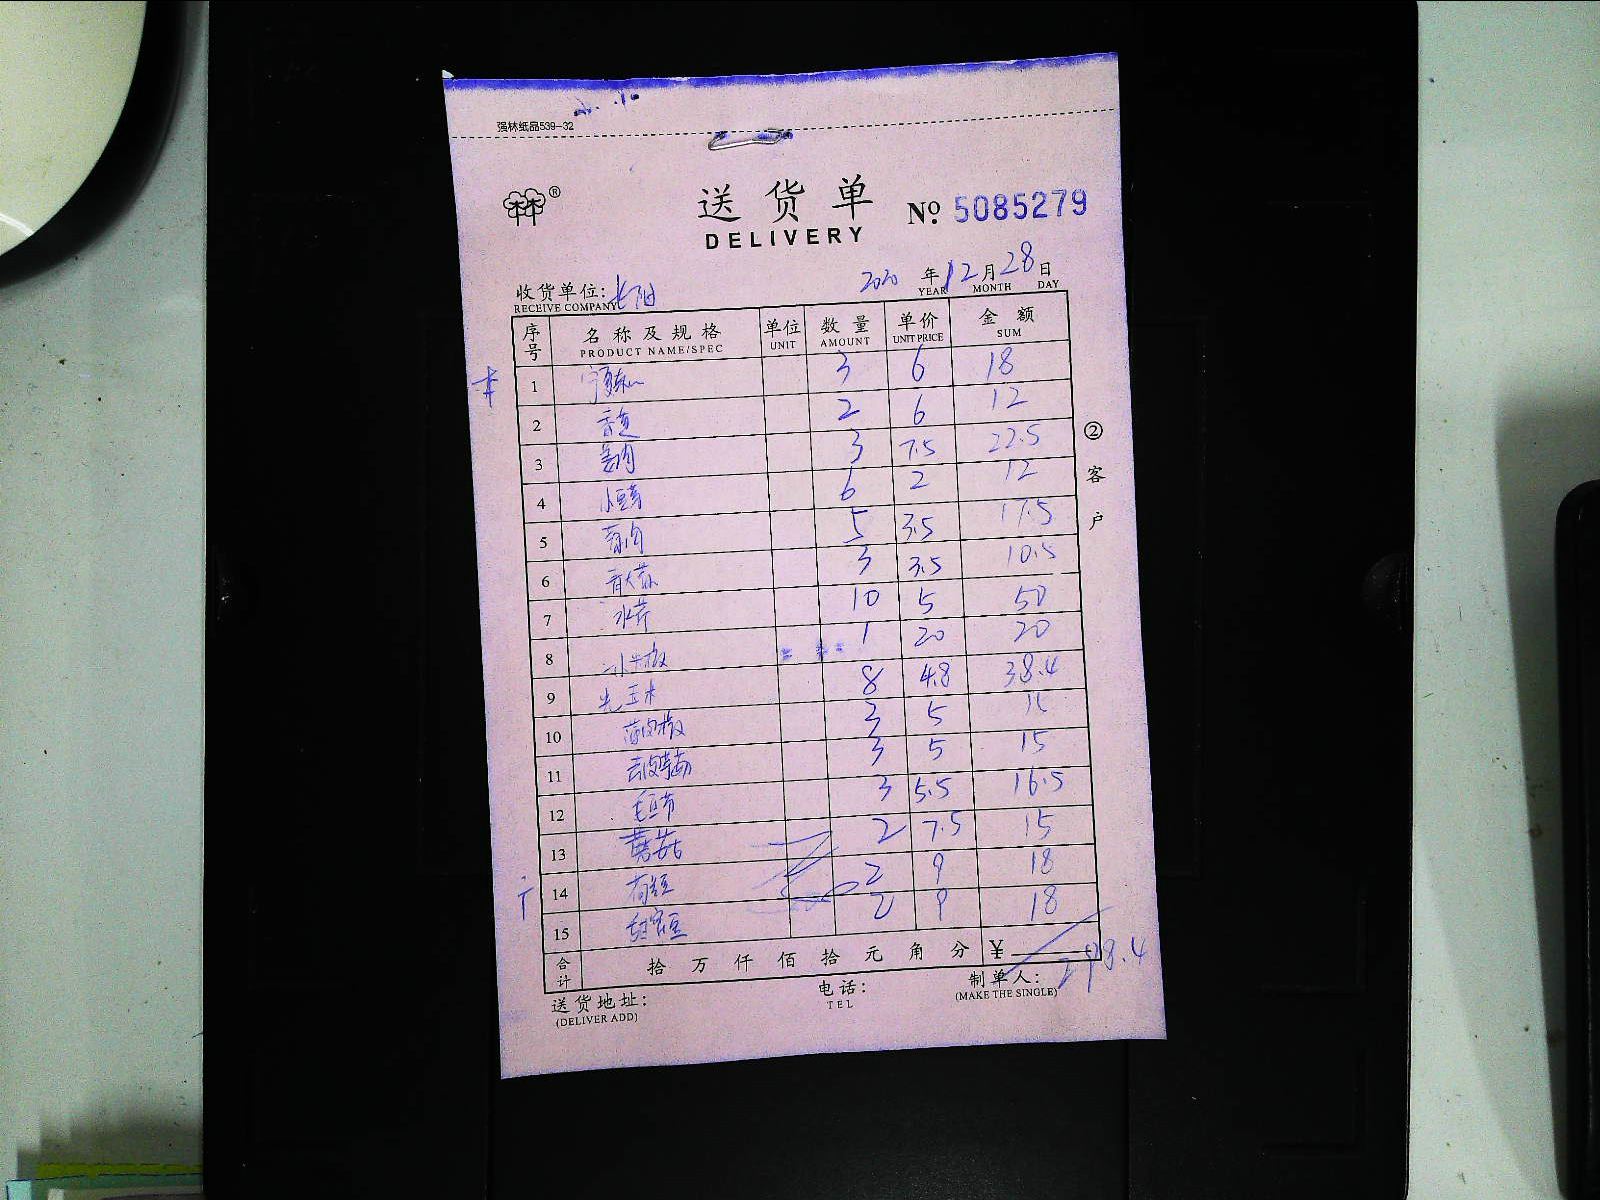 强林纸品539-32
送货单
DELIVERY
№ 5085279
收货单位:
RECEIVE COMPANY
2020 年 12 月 28 日
YEAR MONTH DAY
序号 名称及规格 单位 数量 单价 金额
PRODUCT NAME/SPEC UNIT AMOUNT UNIT PRICE SUM
1 3 6 18
2 2 6 12
3 姜肉 3 7.5 22.5
4 小豆芽 6 2 12
5 5 3.5 17.5
6 3 3.5 10.5
7 水芹 10 5 50
8 小米椒 1 20 20
9 光玉米 8 4.8 38.4
10 薄皮椒 3 5
11 3 5 15
12 毛豆节 3 5.5 16.5
13 蘑菇 2 7.5 15
14 荷兰豆 2 9 18
15 甜蜜豆 2 9 18
合计 拾 万 仟 佰 拾 元 角 分 ¥ 298.4
送货地址:
(DELIVER ADD)
电话:
TEL
制单人:
(MAKE THE SINGLE)
②客户